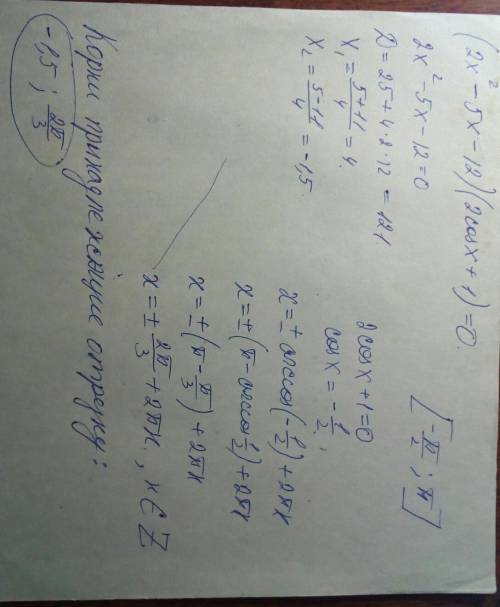 (2x² - 5x - 12)(2cosx + 1) = 0. [-π/2 ; π]
2x² - 5x - 12 = 0
D = 25 + 4·2·12 = 121
x₁ = (5+11)/4 = 4.
x₂ = (5-11)/4 = -1,5.
2cosx + 1 = 0
cosx = -1/2,
x = ± arccos(-1/2) + 2πк
x = ± (π - arccos 1/2) + 2πк
x = ± (π - π/3) + 2πк
x = ± 2π/3 + 2πк, к ∈ Z
Корни принадлежащие отрезку:
-1,5 ; 2π/3